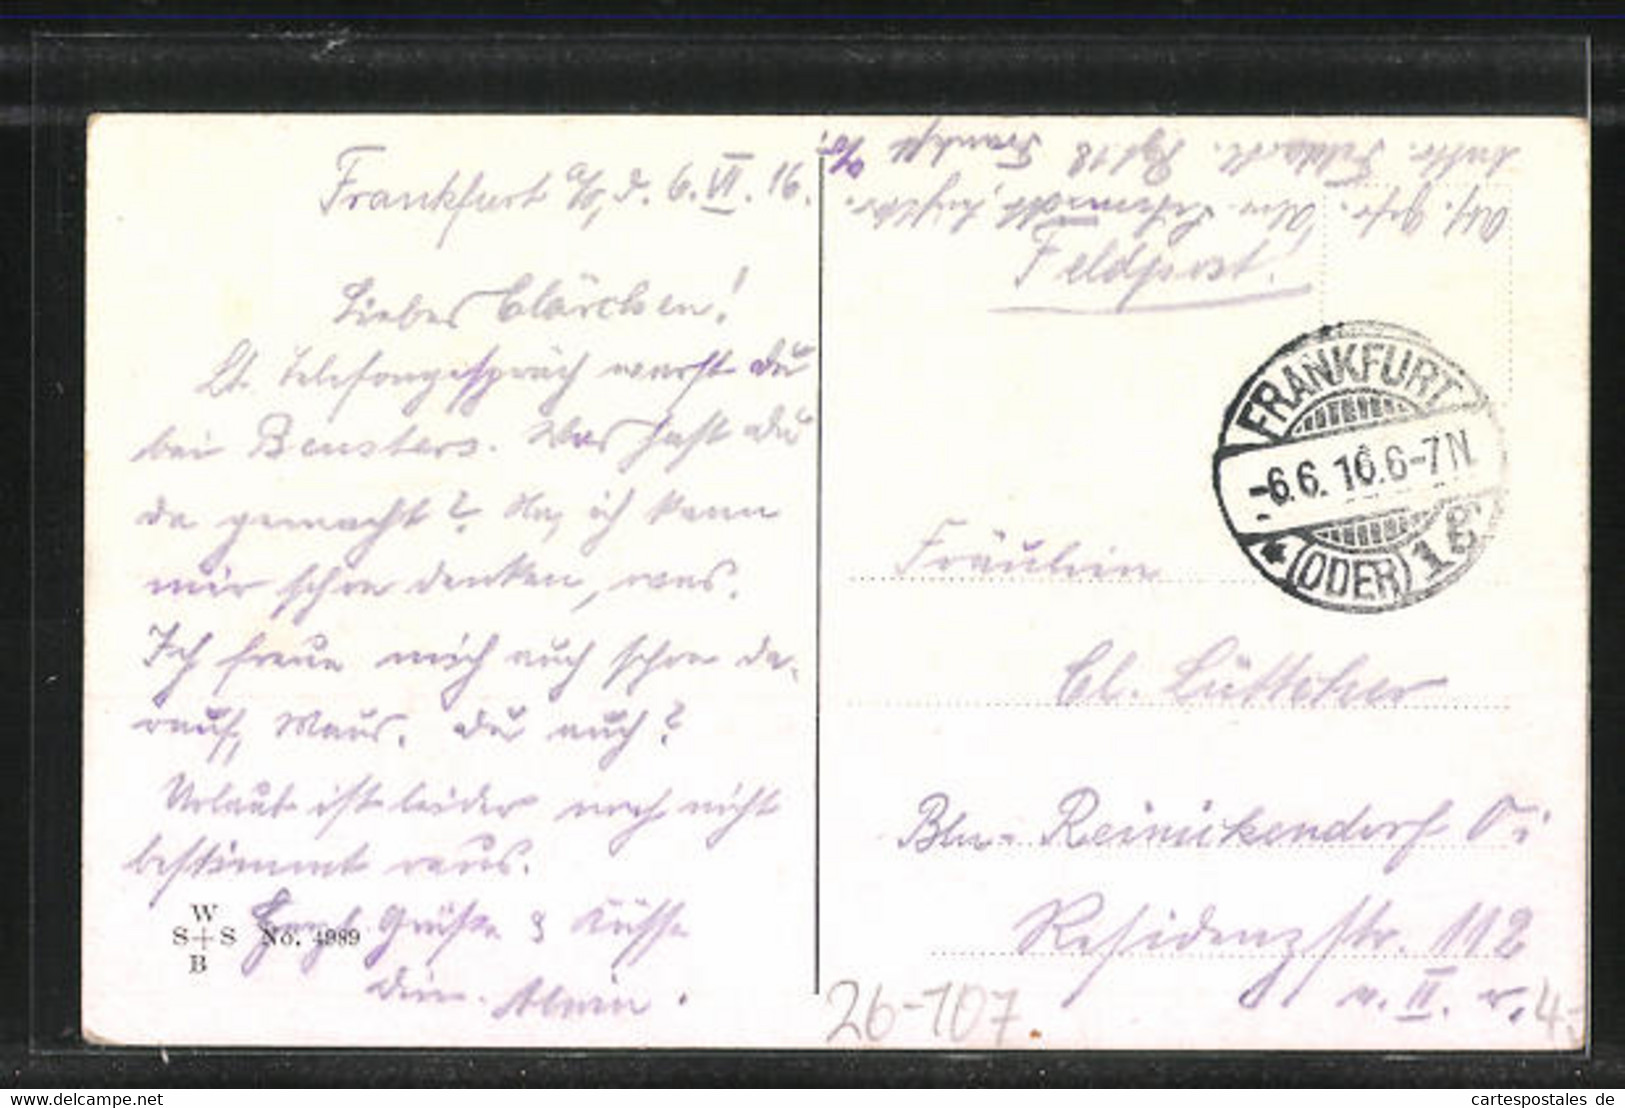 Frankfurt a/O, d. 6. VI. 16.
Liebes Clärchen!
Lt. Telefongespräch warst du
bei Beusters. Was hast du
da gemacht? Na, ich kann
mir schon denken, was.
Ich freue mich auch schon da-
rauf, Maus. Du auch?
Urlaub ist leider noch nicht
bestimmt raus.
Herzl. Grüße & Küsse
Dein Alwin.
W
S S No. 4989
B
Frankft a/O.
Feldpost!
FRANKFURT
-6.6.16.6-7N.
* (ODER) 1
Fräulein
Cl. Lüttcher
Bln-Reinickendorf Ost
Residenzstr. 112
v. II. r.
26-107
4.-
cartespostales de
www.cartespostales.de/en